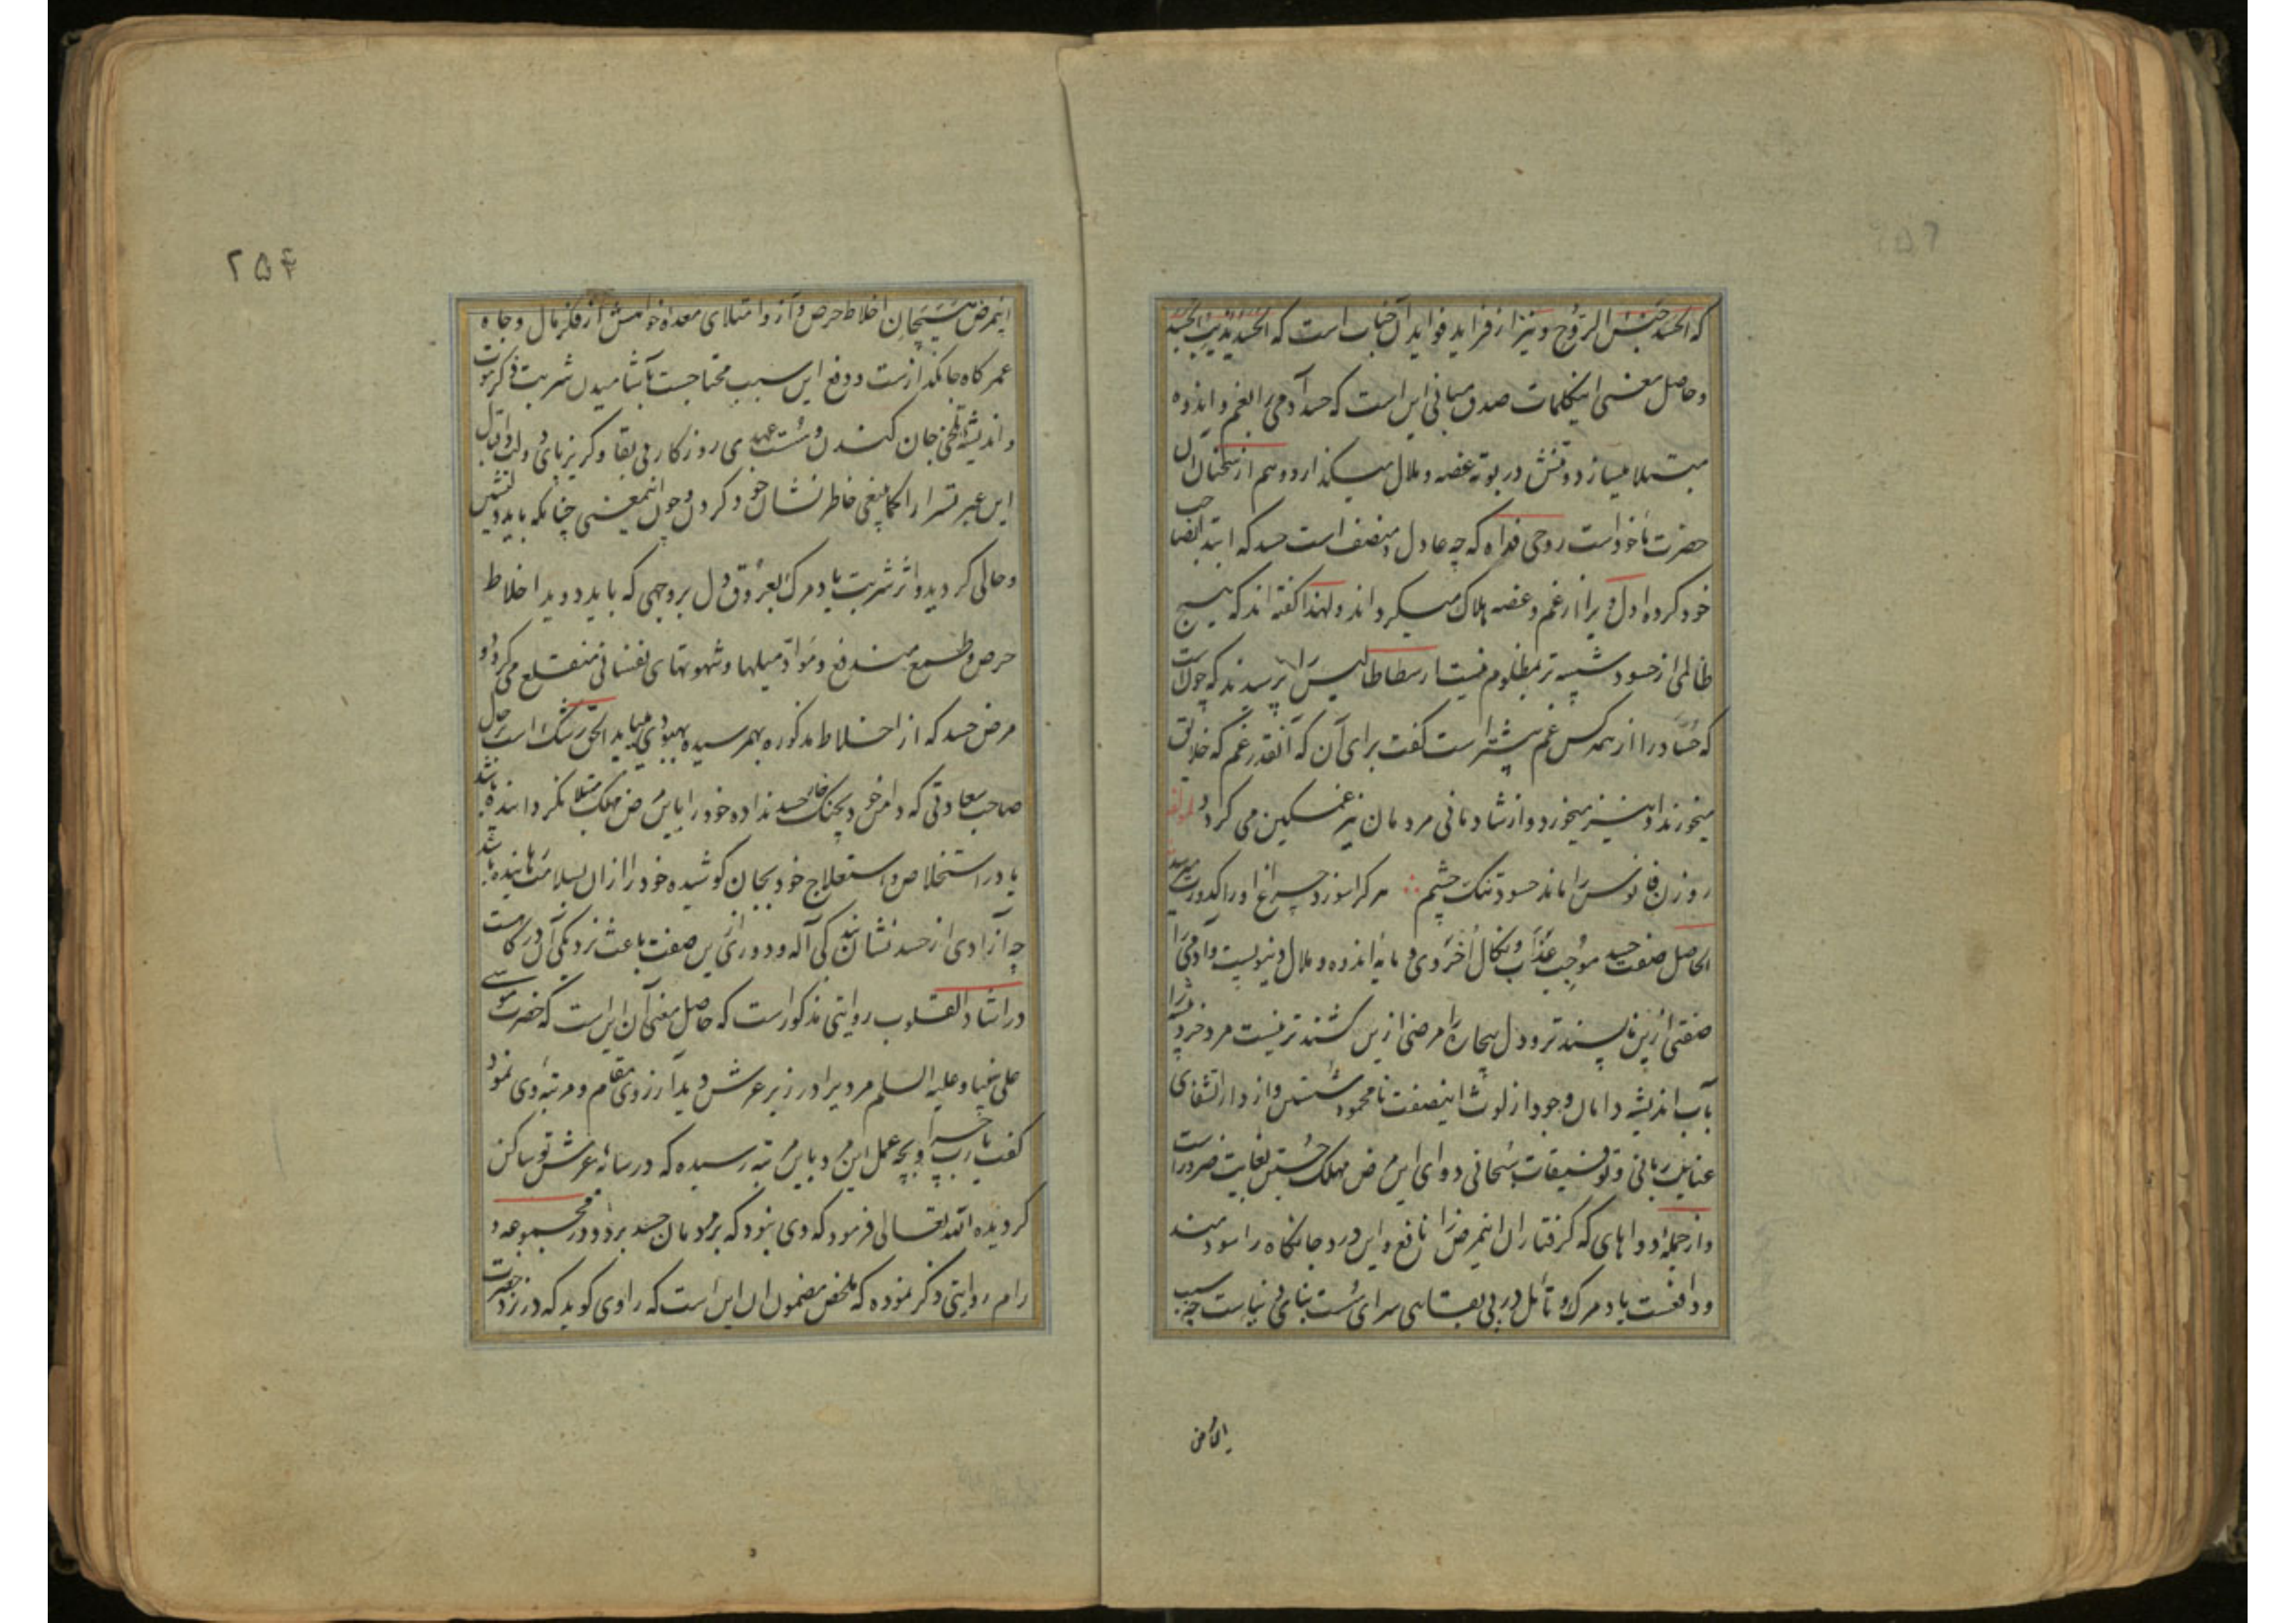 که الحسد حبس الروح و نیز از فراید فواید آن جناب است که الحسد یذیب الجسد
و حاصل معنی اینکلمات صدق مبانی این است که حسد آدمی را بغم و اندوه
مبتلا میسازد و تنش در بوته غصه و ملال میکذارد و هم از سخنان آن
حضرت ماخوذ است روحی فداه که چه عادل و منصف است حسد که ابتدا بصاحب
خود کرده اول ویرا از غم و غصه هلاک میکرداند و لهذا کفته اند که هیچ
ظالمی از حسود شبیه تر بمظلوم نیست ارسطاطالیس را پرسیدند که چونست
که حساد را از همه کس غم بیشتر است کفت برای آن که آنقدر غم که خلایق
میخورند او نیز میخورد و از شادمانی مردمان نیز غمکین می کردد لمولفه
روزن فانوس را ماند حسود تنک چشم ∴ هر کرا سوزد چراغ او را کدورت میرسد
الحاصل صفت حسد موجب عذاب و نکال اخروی و مایه اندوه و ملال دنیویست و آدمی را
صفتی ازین ناپسندتر و دل بیچاره را مرضی ازین کشنده تر نیست مرد خردپیشه را
بآب اندیشه دامان وجود از لوث اینصفت نامحمود شستن و از دار الشفای
عنایت ربانی و توفیقات سبحانی دوای این مرض مهلک جستن بغایت ضرور است
و از جمله دواهای که کرفتاران اینمرض را نافع و این درد جانکاه را سودمند
و دافعست یاد مرک و تامل در بی بقایی سرای سست بنای دنیاست چه سبب
اینمرض
۲۵۴
اینمرض هیجان اخلاط حرص و آز و امتلای معده خواهش از فکر مال و جاه
عمر کاه جانکداز است و دفع این سبب محتاجست بآشامیدن شربت ذکر موت
و اندیشه تلخی جان کندن و سست عهدی روزکار بی بقا و کریزپای دولت و اقبال
این عبرتسرا را کماینبغی خاطرنشان خود کردن و چون اینمعنی چنانکه باید دلنشین
و حالی کردید و اثر شربت یاد مرک بعروق دل بروجهی که باید دوید اخلاط
حرص و طمع مندفع و مواد میلها و شهوتهای نفسانی منقلع می کردد و
مرض حسد که از اخلاط مذکوره بهمرسیده بهبودی مییابد الحق رشک است بر حال
صاحب سعادتی که دامن خود بچنک خار حسد نداده خود را باین مرض مهلک مبتلا نکردانیده باشد
یا در استخلاص و استعلاج خود بجان کوشیده خود را از آن بسلامت رهانیده باشد
چه آزادی از حسد نشان بندکی آله و دوری ازین صفت باعث نزدیکی آن درکاهست
در ارشاد القلوب روایتی مذکور است که حاصل معنی آن این است که حضرت موسی
علی نبینا و علیه السلام مردیرا در زیر عرش دید آرزوی مقام و مرتبه وی نمود
کفت یا رب او بچه عمل این مرد باین مرتبه رسیده که در سایه عرش تو ساکن
کردیده الله تعالی فرمود که وی نبود که بر مردمان حسد برد و در مجموعه و
رام روایتی ذکر نموده که ملخص مضمون ان این است که راوی کوید که در نزد حضرت